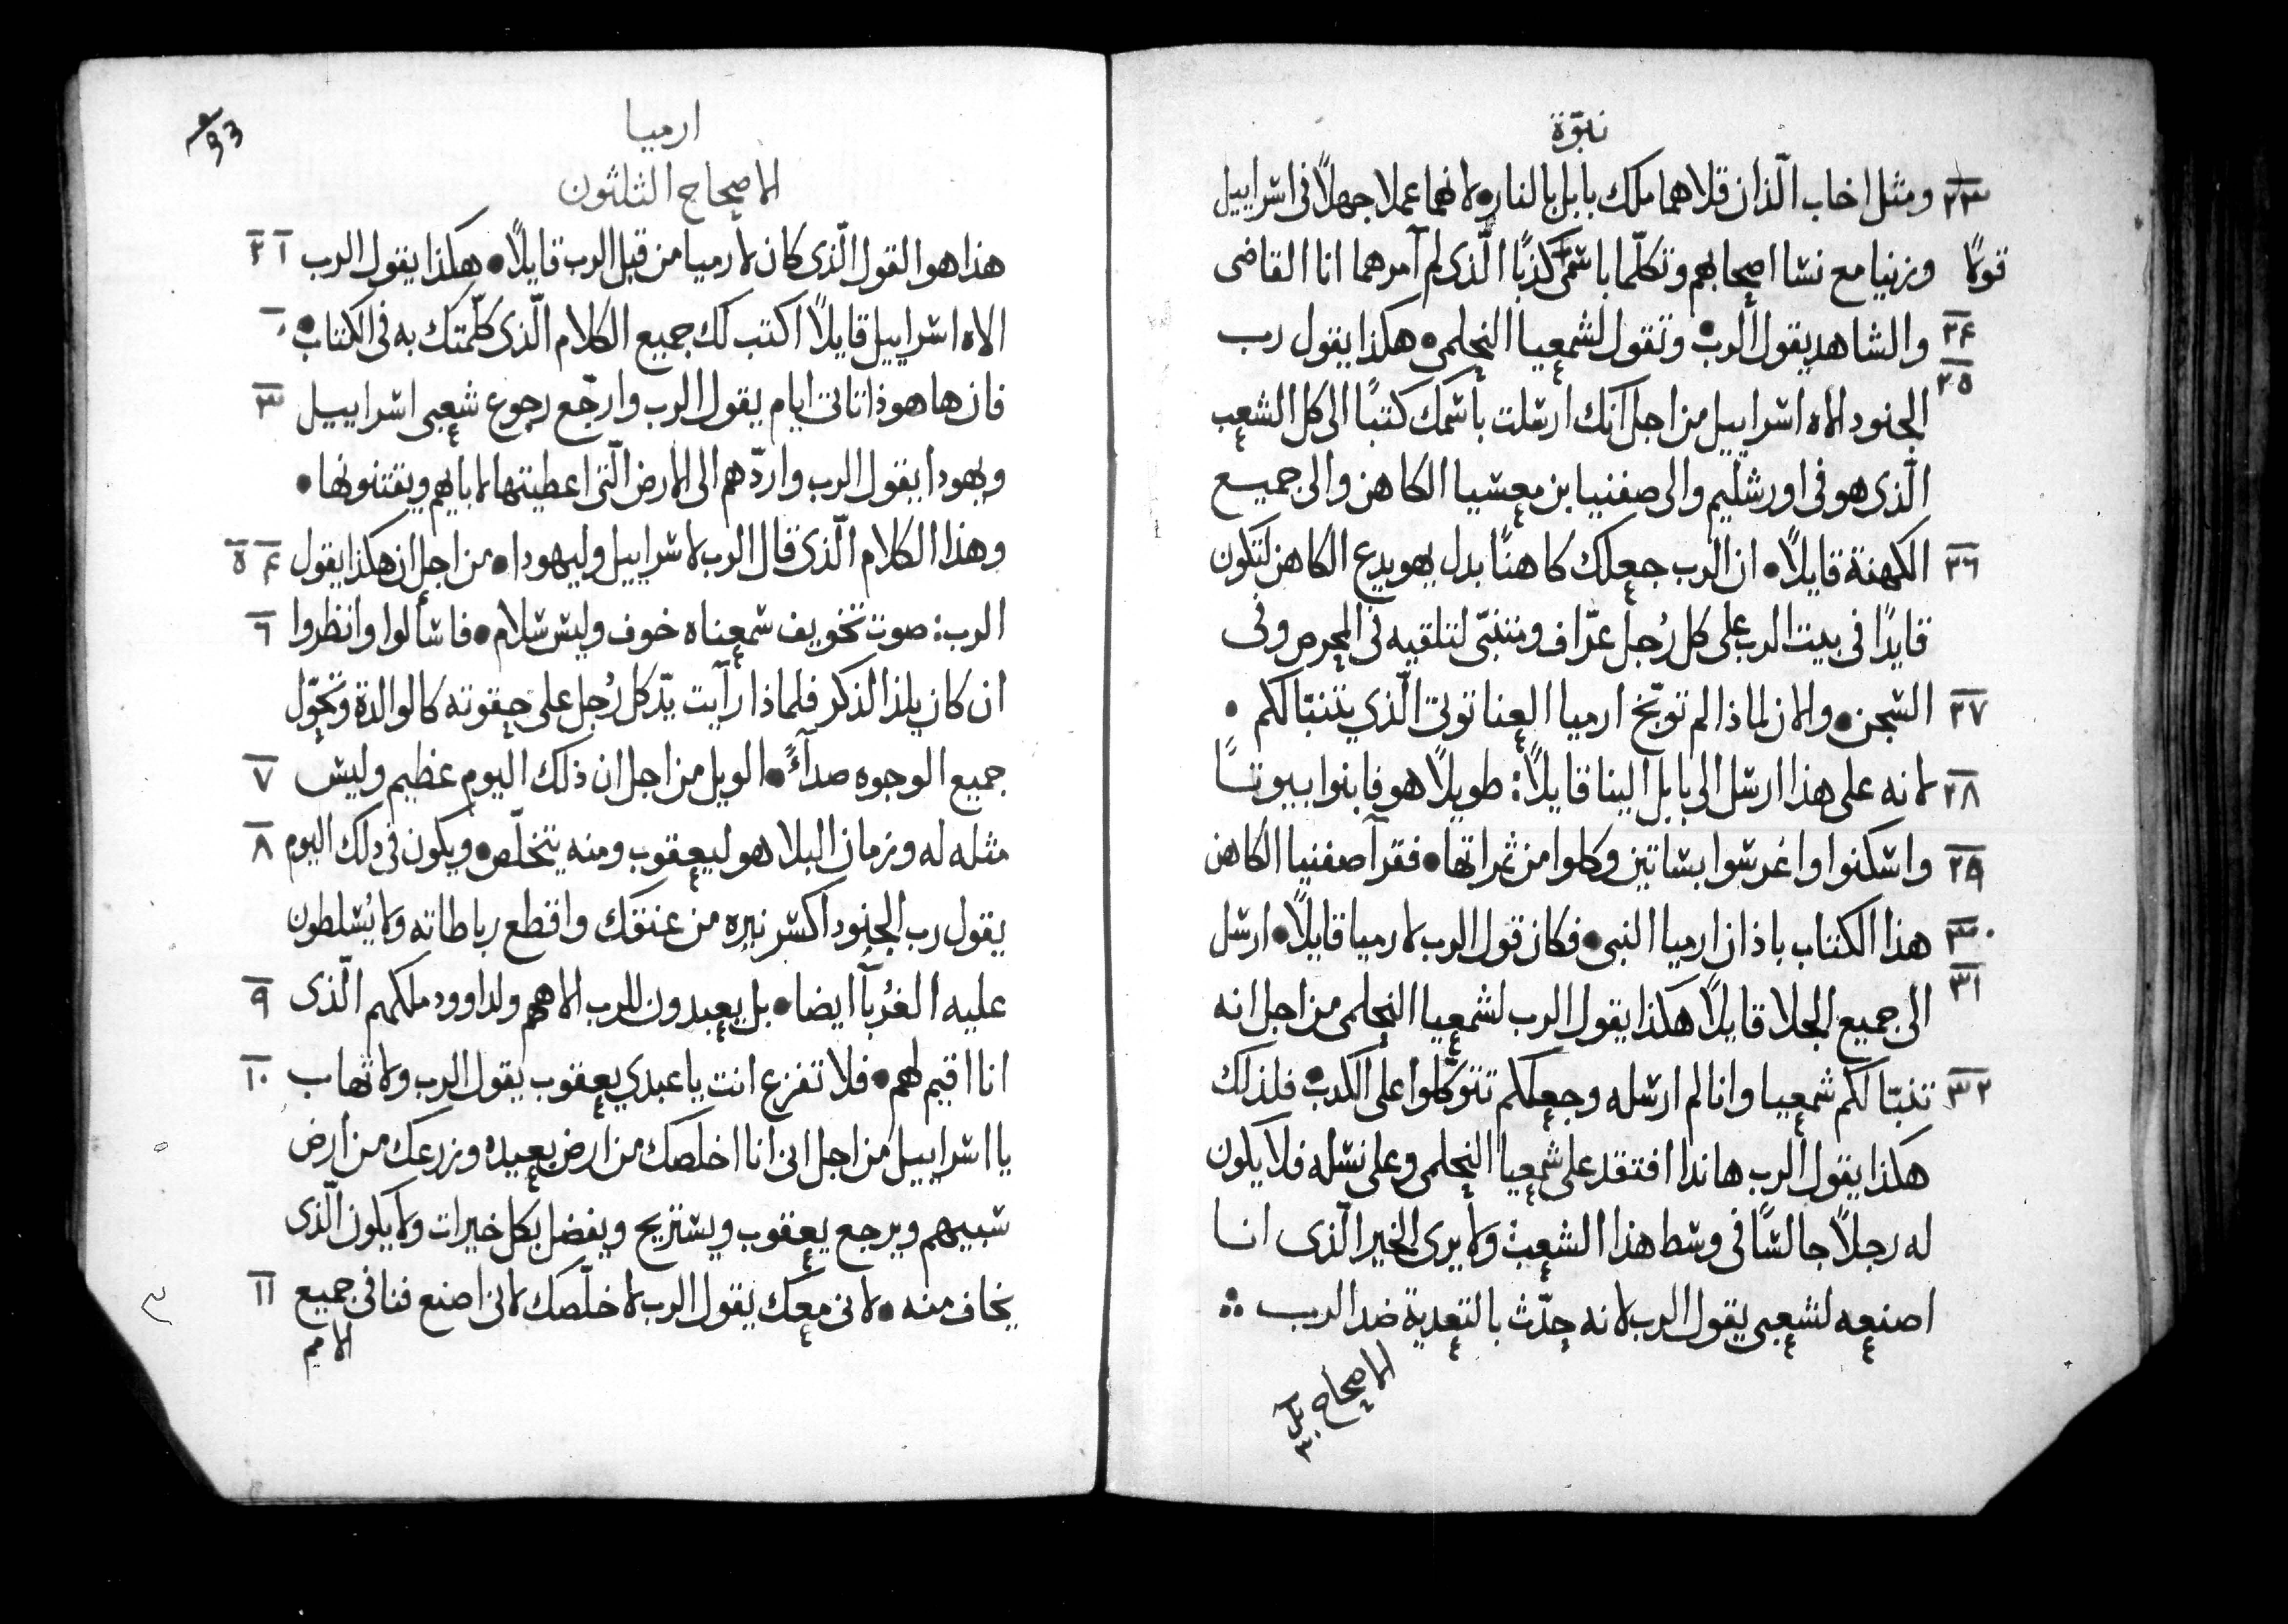 نبوّة
٢٣ ومثل اخاب الّذان قلاهما ملك بابل بالنار • لانهما عملا جهلاً فى اسراييل
قولًا وزنيا مع نسا اصحابهم وتكلّما باسمى كذبًا الّذى لم آمرهما انا القاضى
٢٤ والشاهد يقول الرب • وتقول لشمعيا النحلمى • هكذا يقول رب
٢٥ الجنود الاه اسراييل من اجل انك ارسلت باسمك كتبًا الى كل الشعب
الّذى هو فى اورشليم والى صفنيا بن معسيا الكاهن والى جميع
٢٦ الكهنة قايلاً • ان الرب جعلك كاهنًا بدل يهويدع الكاهن لتكون
قايدًا فى بيت الرب على كل رُجل عرّاف ومتنبّى لتلقيه فى المحرص وفى
٢٧ السجن • والان لماذا لم توبّخ ارميا العناتوتى الّذي يتنبّا لكم •
٢٨ لانه على هذا ارسل الى بابل الينا قايلاً: طويلاً هو فابنوا بيوتًا
٢٩ واسكنوا واغرسوا بساتين وكلوا من ثمراتها • فقرآ صفنيا الكاهن
٣٠ هذا الكتاب باذان ارميا النبى • فكان قول الرب لارميا قايلاً • ارسل
٣١ الى جميع الجلا قايلاً هكذا يقول الرب لشمعيا النحلمى من اجل انه
٣٢ تنبّا لكم شمعيا وانا لم ارسله وجعلكم تتوكّلوا على الكدب • فلذلك
هكذا يقول الرب هاندا افتقد على شمعيا النحلمى وعلى نسله فلا يكون
له رجلاً جالسًا فى وسط هذا الشعب ولا يرى الخير الّذى انا
اصنعه لشعبى يقول الرب لانه حدّث بالتعدية ضد الرب
الاصحاح
٣٠
93
ارميا
الاصحاح الثلثون
هذا هو القول الّذى كان لارميا من قبل الرب قايلاً • هكذا يقول الرب ١ ٢
الاه اسراييل قايلاً اكتب لك جميع الكلام الّذى كلّمتك به فى الكتاب •
فان هاهوذا تاتى ايام يقول الرب وارجّع رجوع شعبى اسراييل ٣
ويهودا يقول الرب واردّهم الى الارض الّتى اعطيتها لابايهم ويقتنونها •
وهذا الكلام الّذى قال الرب لاسراييل وليهودا • من اجل ان هكذا يقول ٤ ٥
الرب: صوت تخويف سمعناه خوف وليس سلام • فاسألوا وانظروا ٦
ان كان يلذ الذكر فلماذا رآيت يدّ كل رُجل على حقوته كالوالدة وتحوّل
جميع الوجوه صدآءً • الويل من اجل ان ذلك اليوم عظيم وليس ٧
مثله له وزمان البلا هو ليعقوب ومنه يتخلّص • ويكون فى ذلك اليوم ٨
يقول رب الجنود اكسر نيره من عنقك واقطع رباطاته ولا يُسلطون
عليه الغُربآ ايضا • بل يعبدون للرب الاههم ولداوود ملكهم الّذى ٩
انا اقيم لهم • فلا تفزع انت يا عبدي يعقوب يقول الرب ولا تهاب ١٠
يا اسراييل من اجل انى انا اخلصك من ارض بعيده وزرعك من ارض
سبيهم ويرجع يعقوب ويستريح ويفضل بكل خيرات ولا يكون الّذى
يخاف منه • لانى معك يقول الرب لاخلّصك لانى اصنع فنا فى جميع ١١
الامم